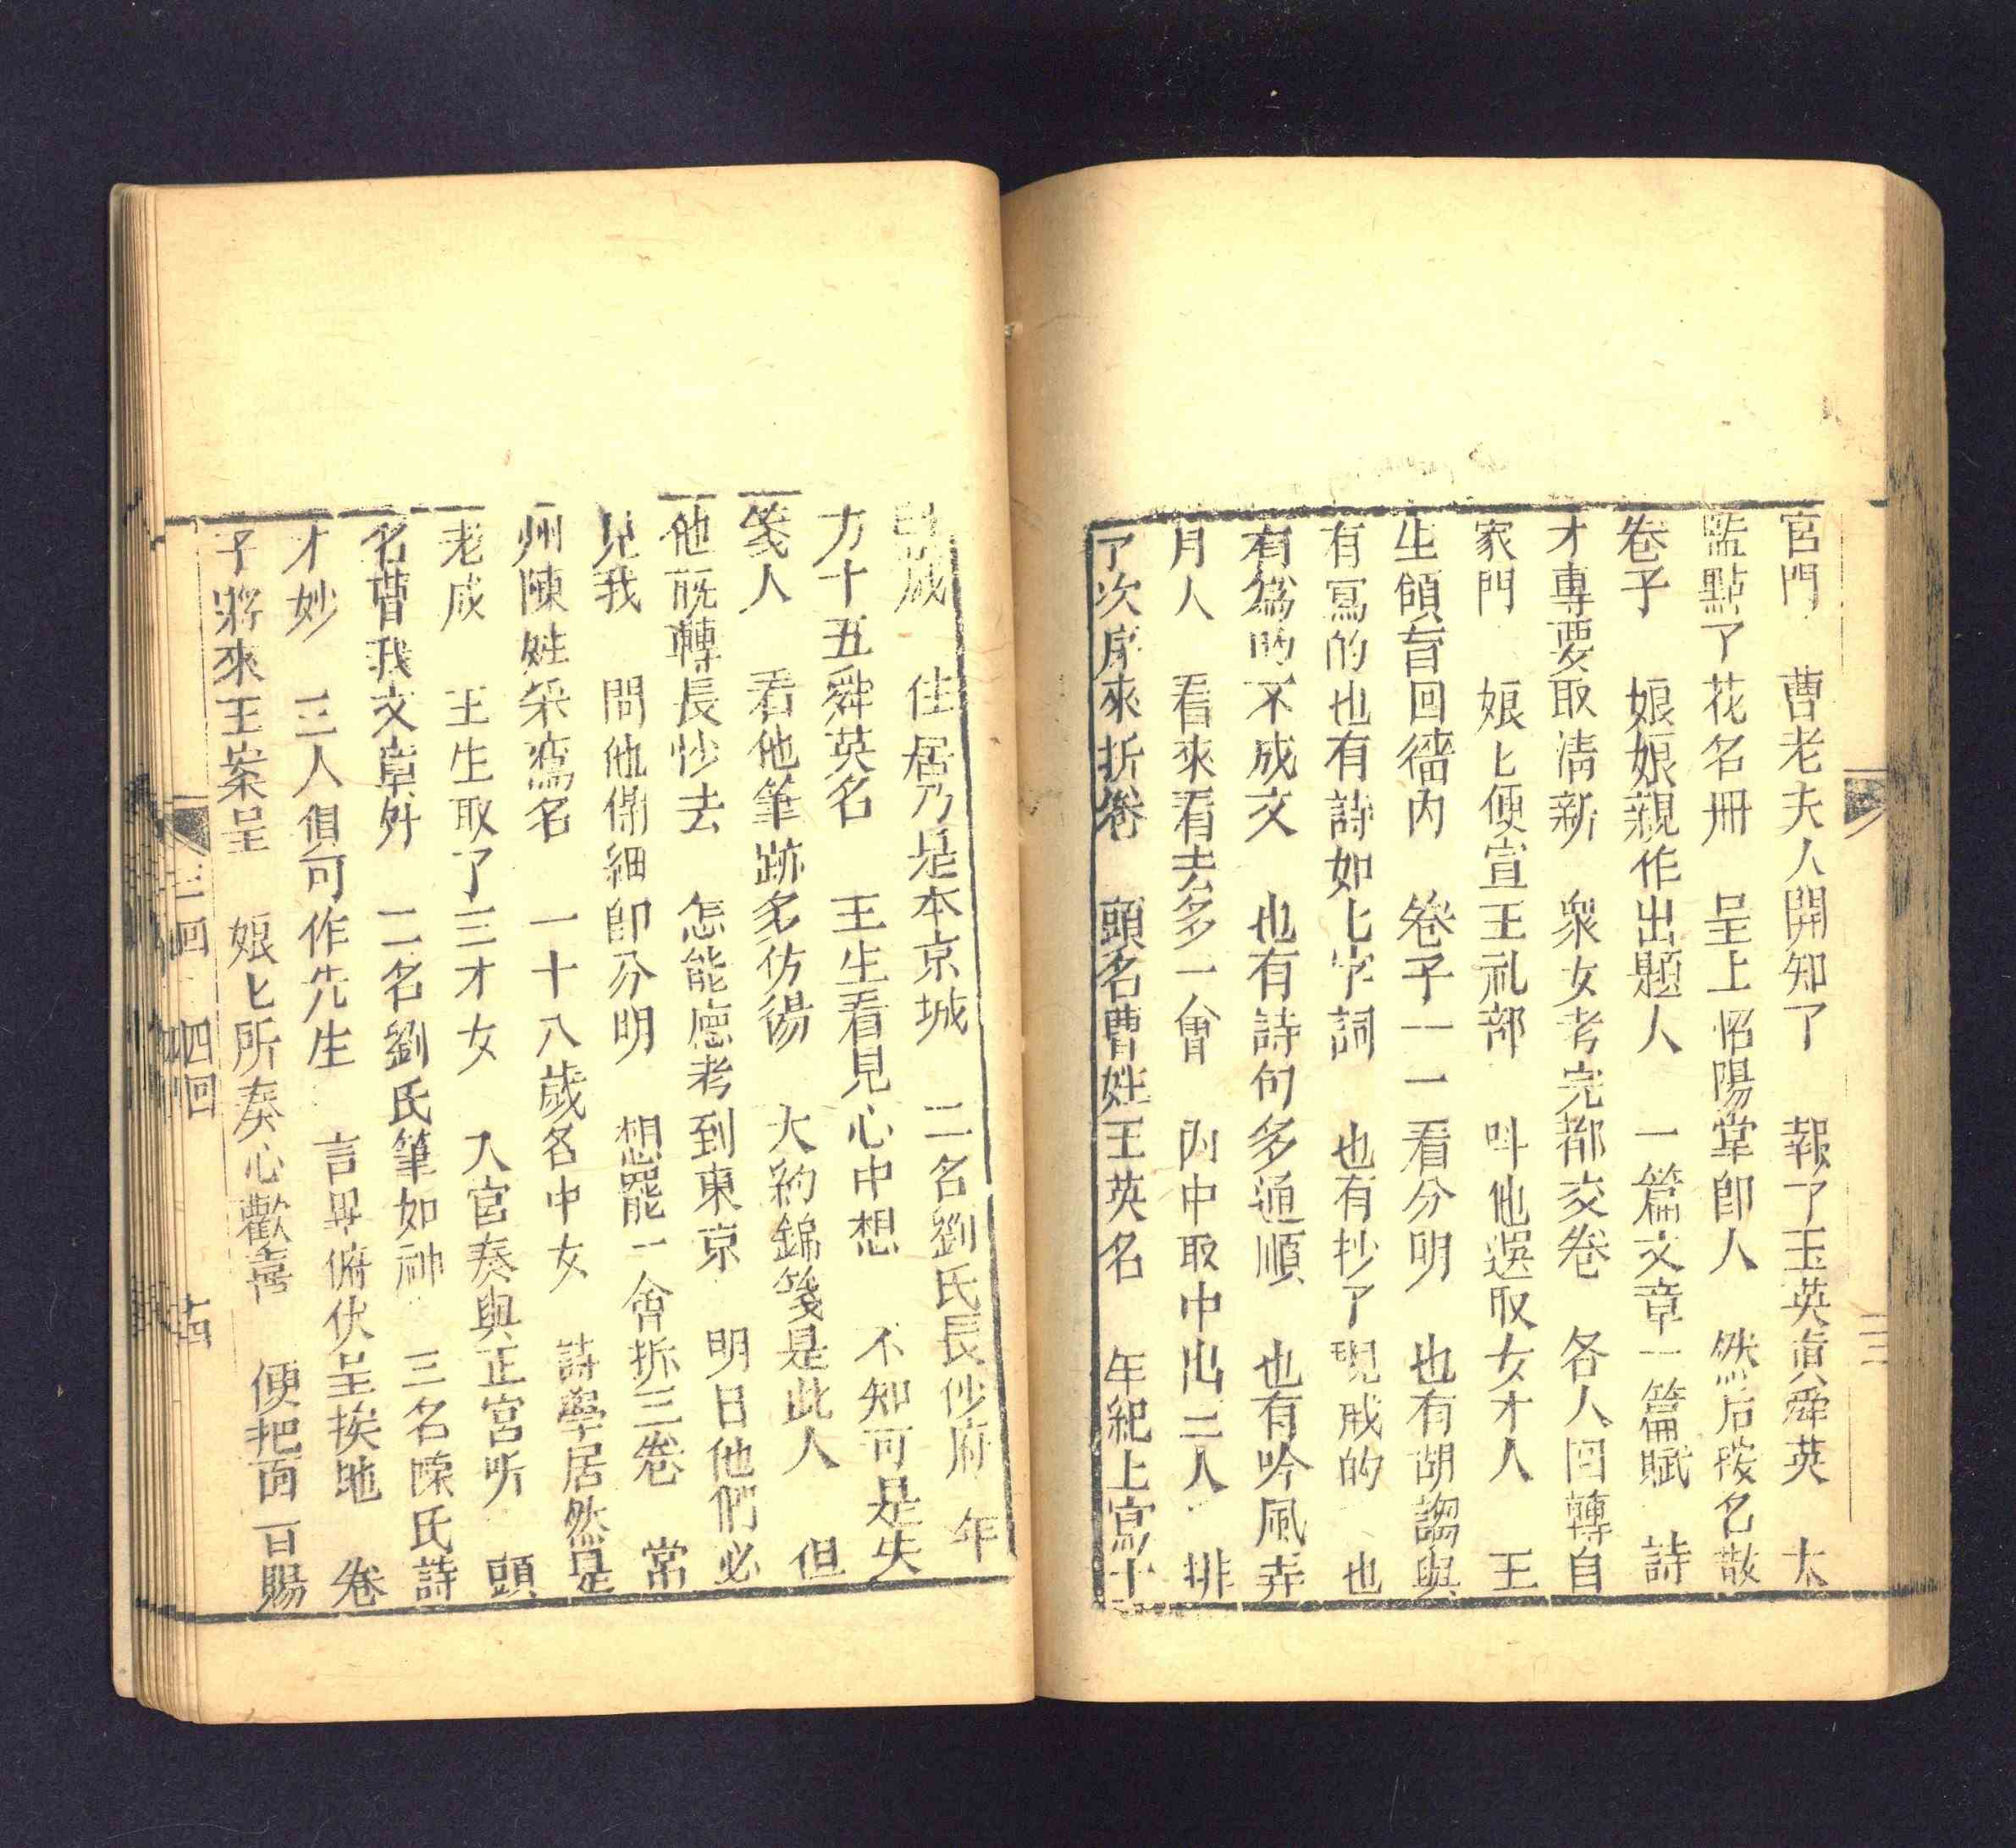 宮門　曹老夫人開知了　報了玉英眞舜英　太
監點了花名冊　呈上昭陽掌卽人　然后按名散
卷子　娘娘親作出題人　一篇文章一篇賦　詩
才專要取淸新　衆女考完都交卷　各人囘轉自
家門　娘匕便宣王礼部　呌他選取女才人　王
生領旨回穡内　卷子一一看分明　也有胡謅與
有寫的也有詩如匕字詞　也有抄了現成的　也
有爲的不成文　也有詩句多通順　也有吟風弄
月人　看來看去多一會　内中取中出三人　排
了次序來折卷　頭名曹姓王英名　年紀上寫十
歲　住居乃是本京城　二名劉氏長沙府　年
方十五舜英名　王生看見心中想　不知可是失
箋人　看他筆跡多彷彿　大約錦箋是此人　但
他旣轉長沙去　怎能應考到東京　明日他們必
見我　問他備細卽分明　想罷一會拆三卷　常
州陳姓采鸞名　一十八歲名中女　詩學居然是
老成　王生取了三才女　入宮奏與正宮听　頭
名曹我文章好　二名劉氏筆如神　三名陳氏詩
才妙　三人俱可作先生　言畢俯伏呈挨地　卷
子將來王案呈　娘匕所奏心歡喜　便把面百賜
三回　四回　十四